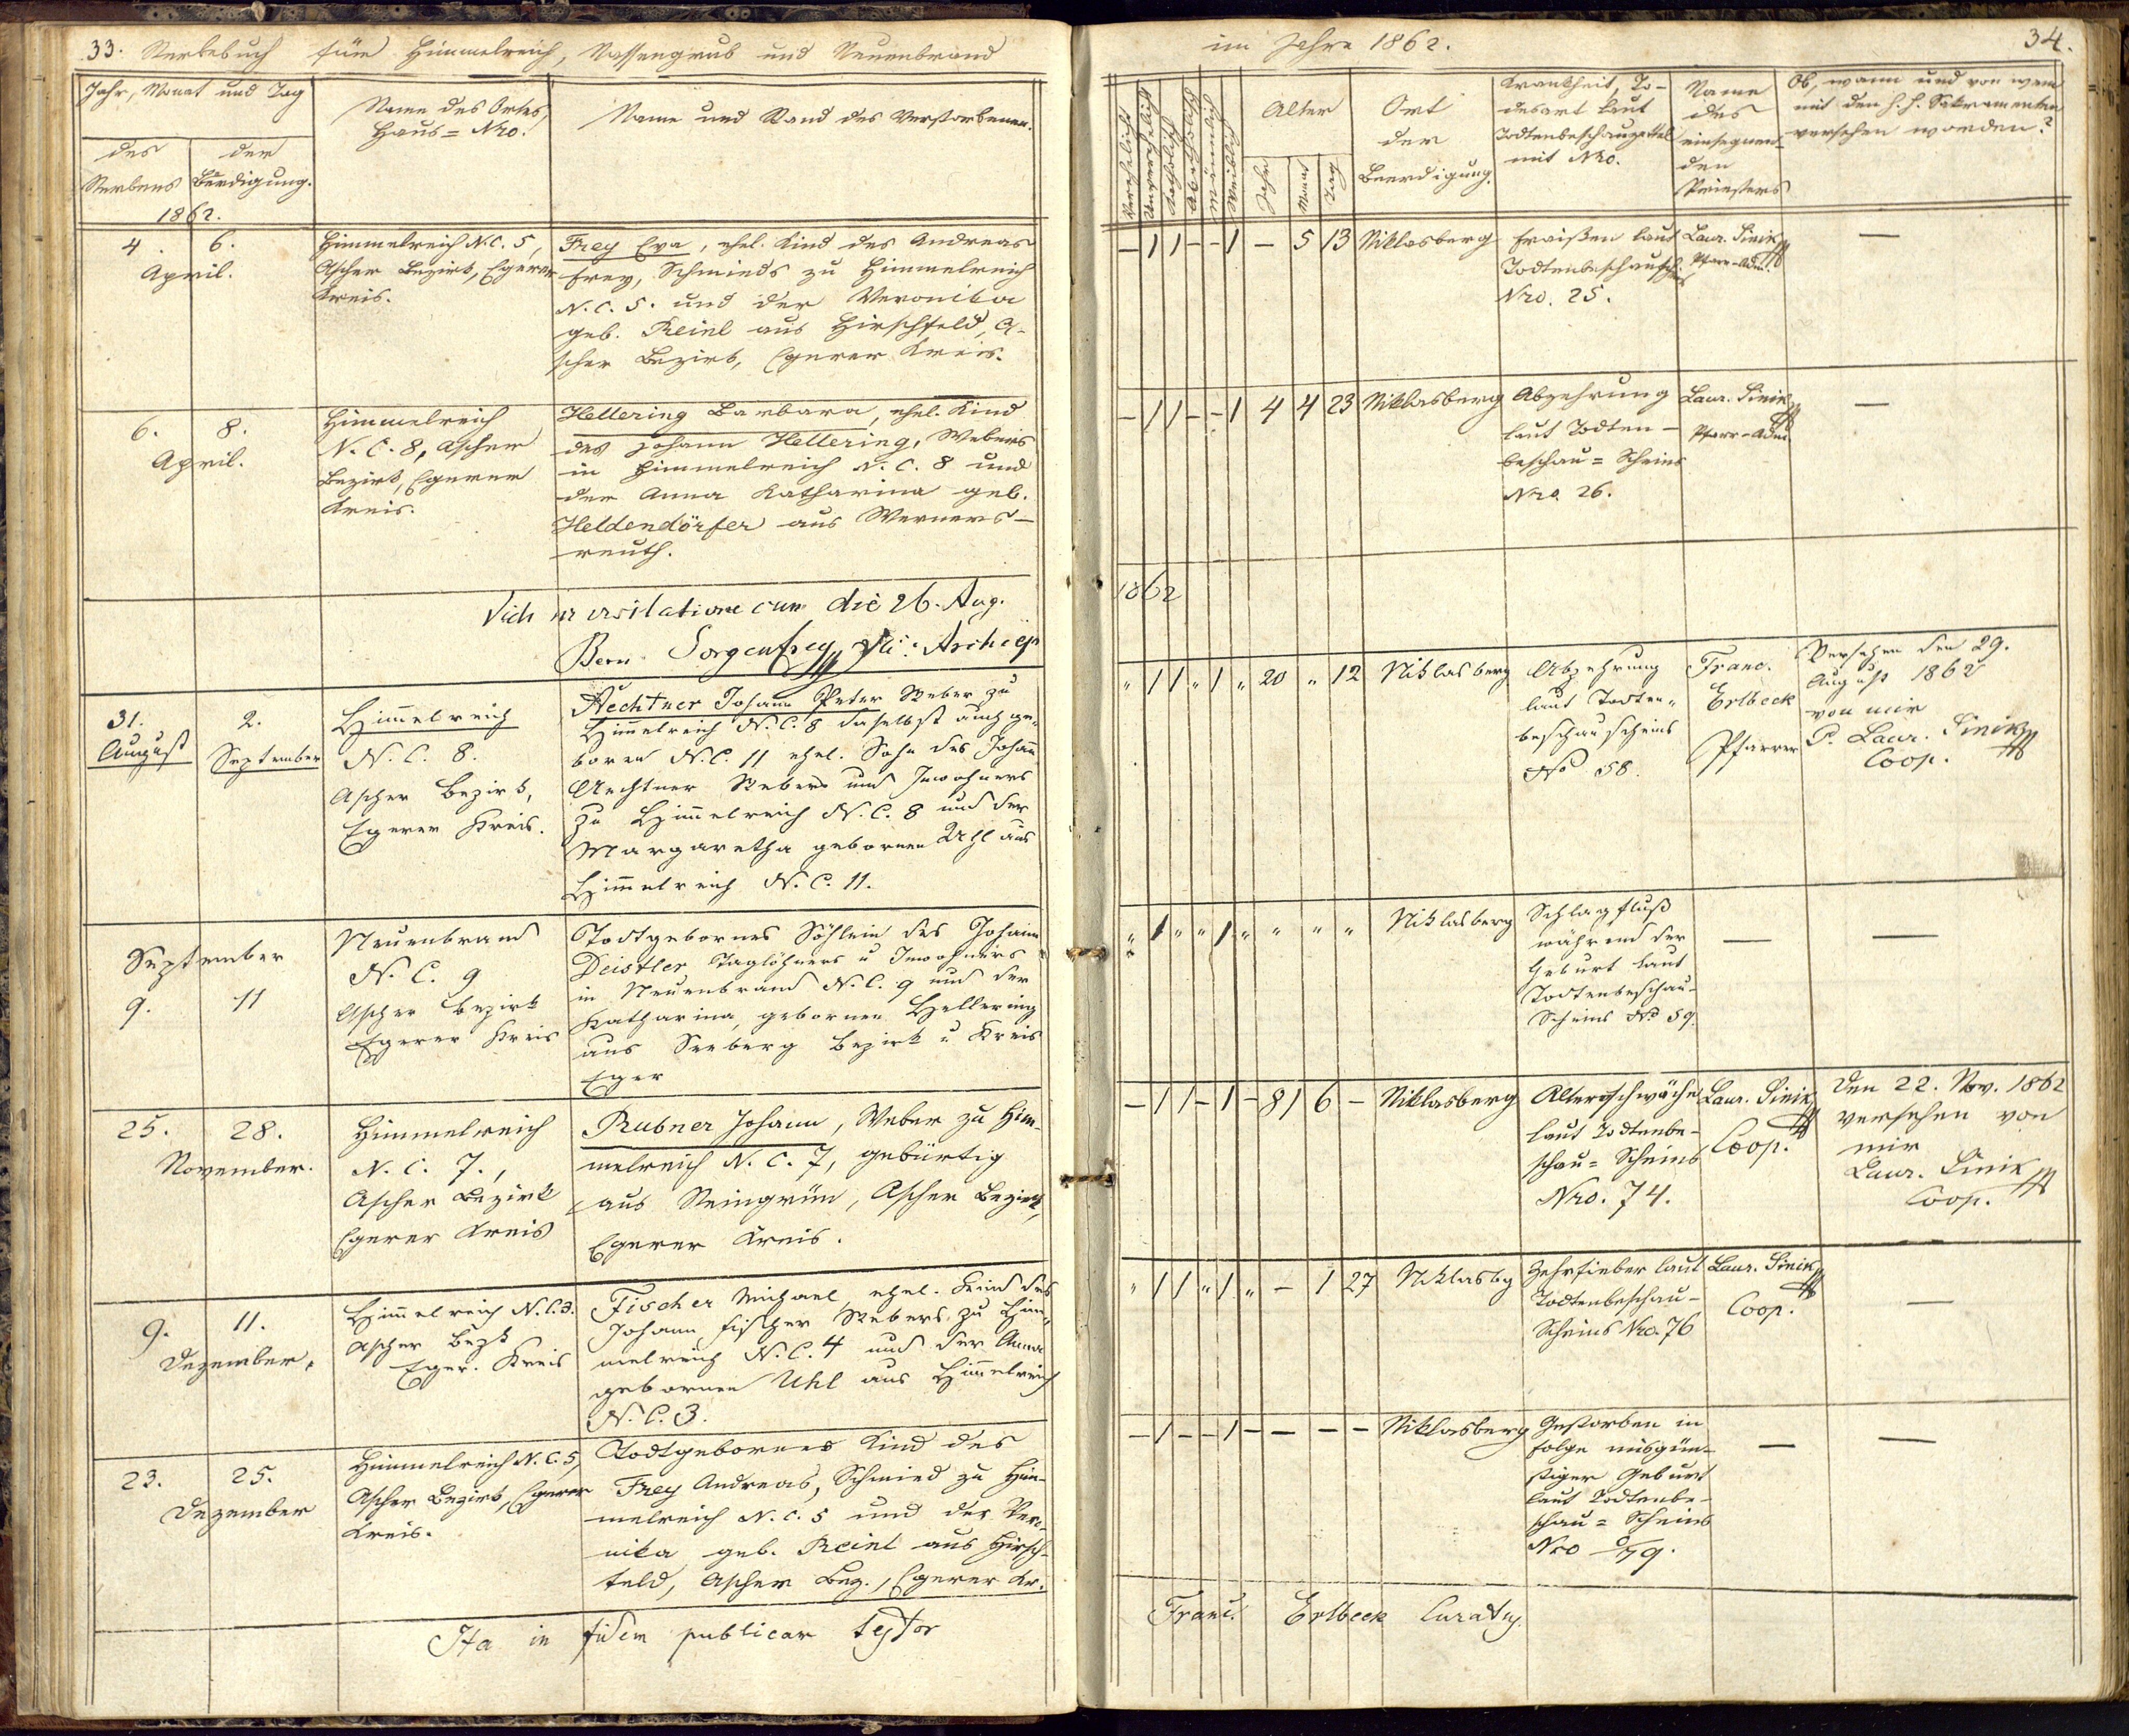 33. Sterbebuch für Himmelreich, Nassengrub und Neuenbrand
Jahr, Monat und Tag
des Sterbens
der Beerdigung.
1862.
Name des Ortes,
Haus=Nro.
Name und Stand des Verstorbenen.
4. 6.
April.
Himmelreich N.C. 5,
Ascher Bezirk, Egerer
Kreis.
Frey Eva, ehel. Kind des Andreas
Frey, Schmieds zu Himmelreich
N.C. 5. und der Veronika
geb. Reinl aus Hirschfeld, A-
scher Bezirk, Egerer Kreis.
6. 8.
April.
Himmelreich
N.C. 8, Ascher
Bezirk, Egerer
Kreis.
Hellering Barbara, ehel. Kind
des Johann Hellering, Webers
in Himmelreich N.C. 8 und
der Anna Katharina geb.
Heldendörfer aus Werners-
reuth.
Vidi in visitatione can. die 26. Aug.
Bern. Sorgenfrey
31.
August
2.
September
Himmelreich
N.C. 8.
Ascher Bezirk,
Egerer Kreis.
Aechtner Johann Peter Weber zu
Himmelreich N.C. 8 daselbst auch ge-
boren N.C. 11 ehel. Sohn des Johann
Aechtner Webers und Inwohners
zu Himmelreich N.C. 8 und der
Margaretha gebornen Uhl aus
Himmelreich N.C. 11.
September
9. 11
Neuenbrand
N.C. 9
Ascher Bezirk
Egerer Kreis
Todtgebornes Söhlein des Johann
Deistler Taglöhners u Inwohners
in Neuenbrand N.C. 9 und der
Katharina, gebornen Hellering
aus Seeberg Bezirk u Kreis
Eger
25. 28.
November.
Himmelreich
N.C. 7.,
Ascher Bezirk
Egerer Kreis
Rubner Johann, Weber zu Him-
melreich N.C. 7, gebürtig
aus Steingrün, Ascher Bezirk,
Egerer Kreis.
9. 11.
Dezember.
Himmelreich N.C. 3.
Ascher Bezk
Eger. Kreis
Fischer Michael ehel. Kind des
Johann Fischer Webers zu Him-
melreich N.C. 4 und der Anna
gebornen Uhl aus Himmelreich
N.C. 3.
23. 25.
Dezember
Himmelreich N.C. 5,
Ascher Bezirk, Egerer
Kreis.
Todtgebornes Kind des
Frey Andreas, Schmied zu Him-
melreich N.C. 5 und der Vero-
nika geb. Reinl aus Hirsch-
feld, Ascher Bez., Egerer Kr.
Ita in fidem publicam testor
im Jahre 1862. 34.
Verehelicht
Unverehelicht
Katholisch
Akatholisch
Männlich
Weiblich
Alter
Jahr
Monat
Tag
Ort
der
Beerdigung.
Krankheit, To-
desart laut
Todtenbeschauzettel
mit Nro.
Name
des
einsegnen-
den
Priesters
Ob, wann und von wem
mit den h. h. Sakramenten
versehen worden?
- 1 1 - - 1 - 5 13 Niklasberg
Fraißen laut
Todtenbeschausch.
Nro. 25.
Laur. Sinik
Pfarr-Adm.
—
- 1 1 - - 1 4 4 23 Niklasberg
Abzehrung
laut Todten-
beschau=Scheins
Nro. 26.
Laur. Sinik
Pfarr-Adm.
—
1862
" 1 1 " 1 " 20 " 12 Niklasberg
Abzehrung
laut Todten-
beschauscheins
No 58.
Franc.
Erlbeck
Pfarrer
Versehen den 29.
August 1862
von mir
P. Laur. Sinik
Coop.
" 1 " " 1 " " " " Niklasberg
Schlagfluß
während der
Geburt laut
Todtenbeschau-
Scheins No 59.
— —
- 1 1 - 1 - 81 6 - Niklasberg
Altersschwäche
laut Todtenbe-
schau=Scheins
Nro. 74.
Laur. Sinik
Coop.
Den 22. Nov. 1862
versehen von
mir
Laur. Sinik
Coop.
" 1 1 " 1 " - 1 27 Niklasbg
Zehrfieber laut
Todtenbeschau-
Scheins Nro. 76
Laur. Sinik
Coop.
—
- 1 - - 1 - - - - Niklasberg
Gestorben in
Folge misgün-
stiger Geburt
laut Todtenbe-
schau=Scheins
Nro 79.
— —
Franc. Erlbeck Curatus.